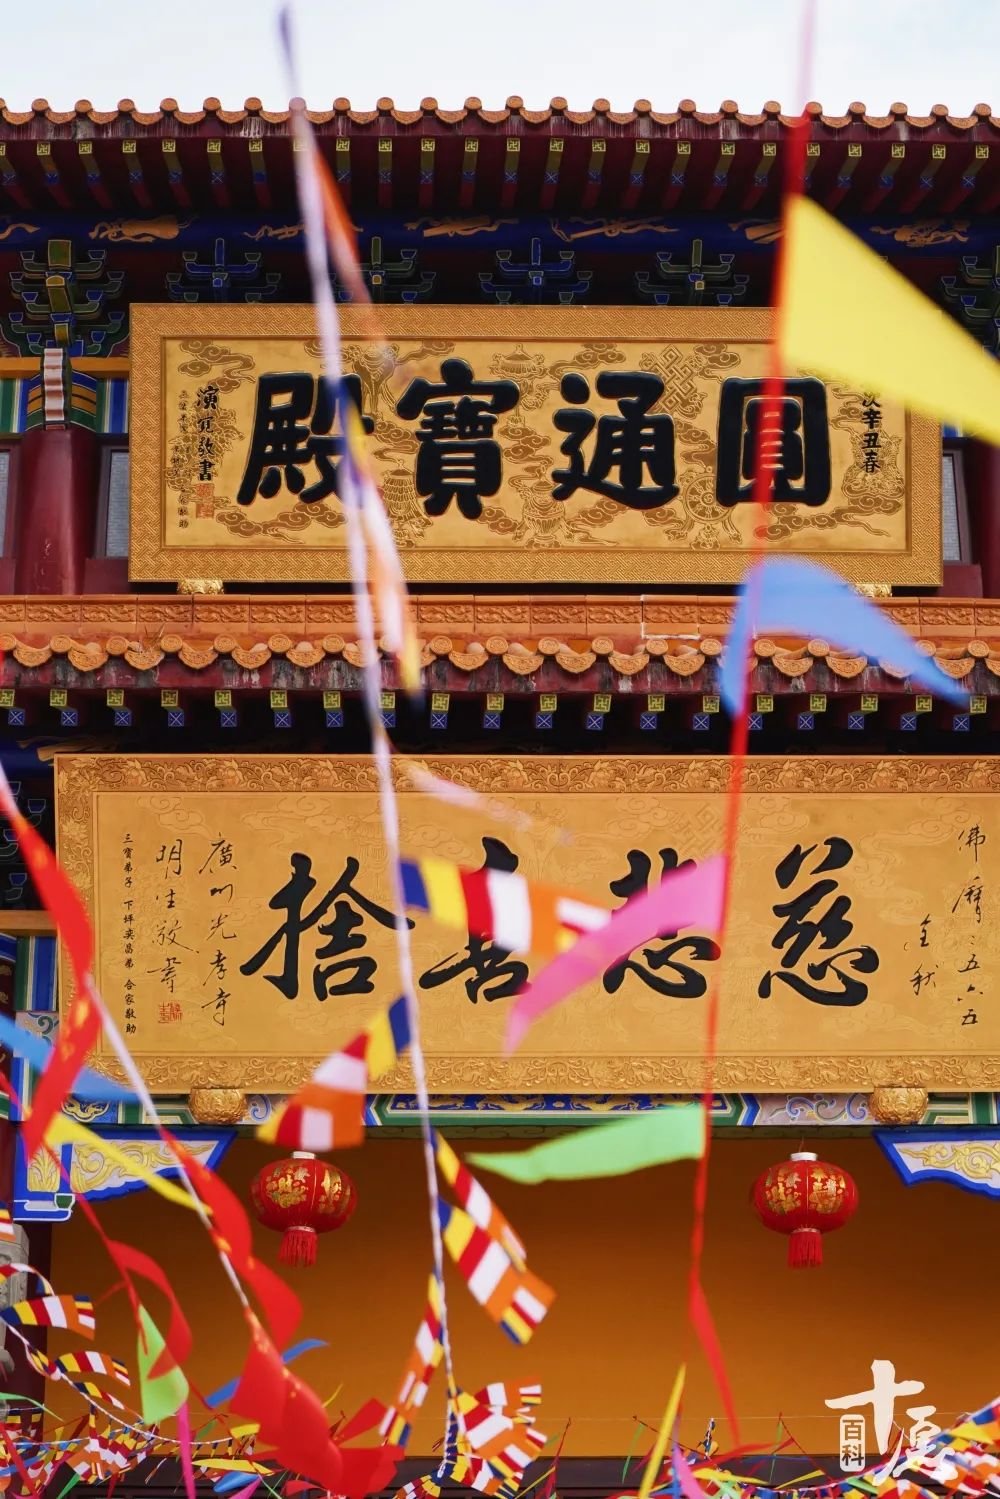 圓通寶殿
次辛丑春
演覺敬書
慈悲喜捨
佛曆二五六五
年秋
廣州光孝寺
明生敬書
三寶弟子 下坪奕昌弟 合家敬助
十愿
百科